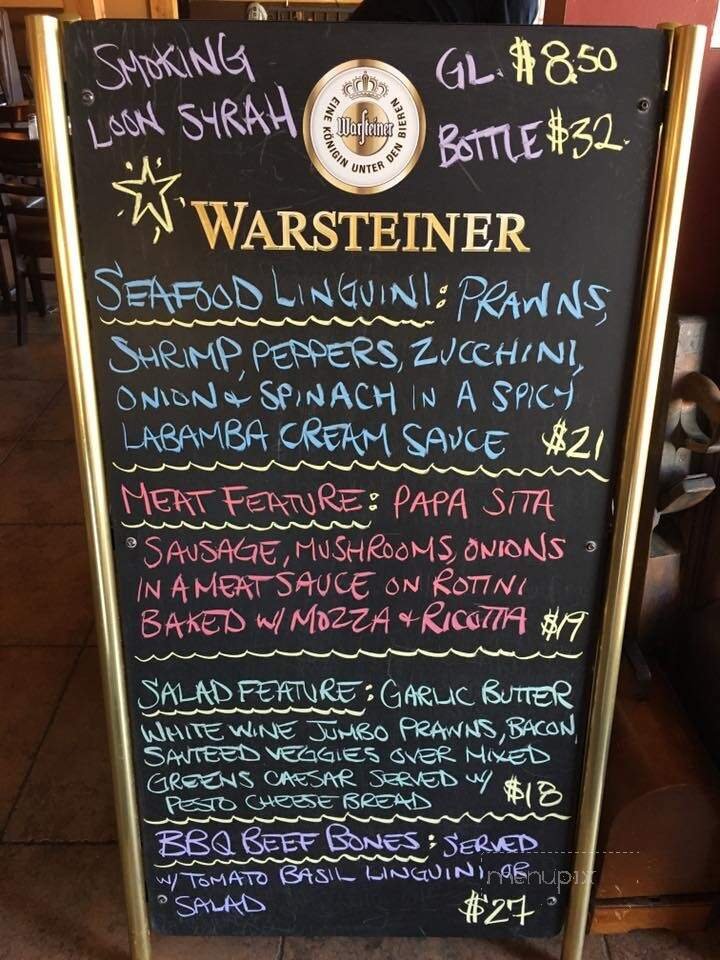 SMOKING GL. $8.50
LOON SYRAH BOTTLE $32.
EINE KÖNIGIN UNTER DEN BIEREN
Warsteiner
WARSTEINER
SEAFOOD LINGUINI: PRAWNS,
SHRIMP, PEPPERS, ZUCCHINI,
ONION & SPINACH IN A SPICY
LABAMBA CREAM SAUCE $21
MEAT FEATURE: PAPA SITA
SAUSAGE, MUSHROOMS, ONIONS
IN A MEAT SAUCE ON ROTINI
BAKED W/ MOZZA + RICOTTA $19
SALAD FEATURE: GARLIC BUTTER
WHITE WINE JUMBO PRAWNS, BACON,
SAUTEED VEGGIES OVER MIXED
GREENS CAESAR SERVED W/
PESTO CHEESE BREAD $18
BBQ BEEF BONES: SERVED
W/ TOMATO BASIL LINGUINI OR
SALAD $27
menupix